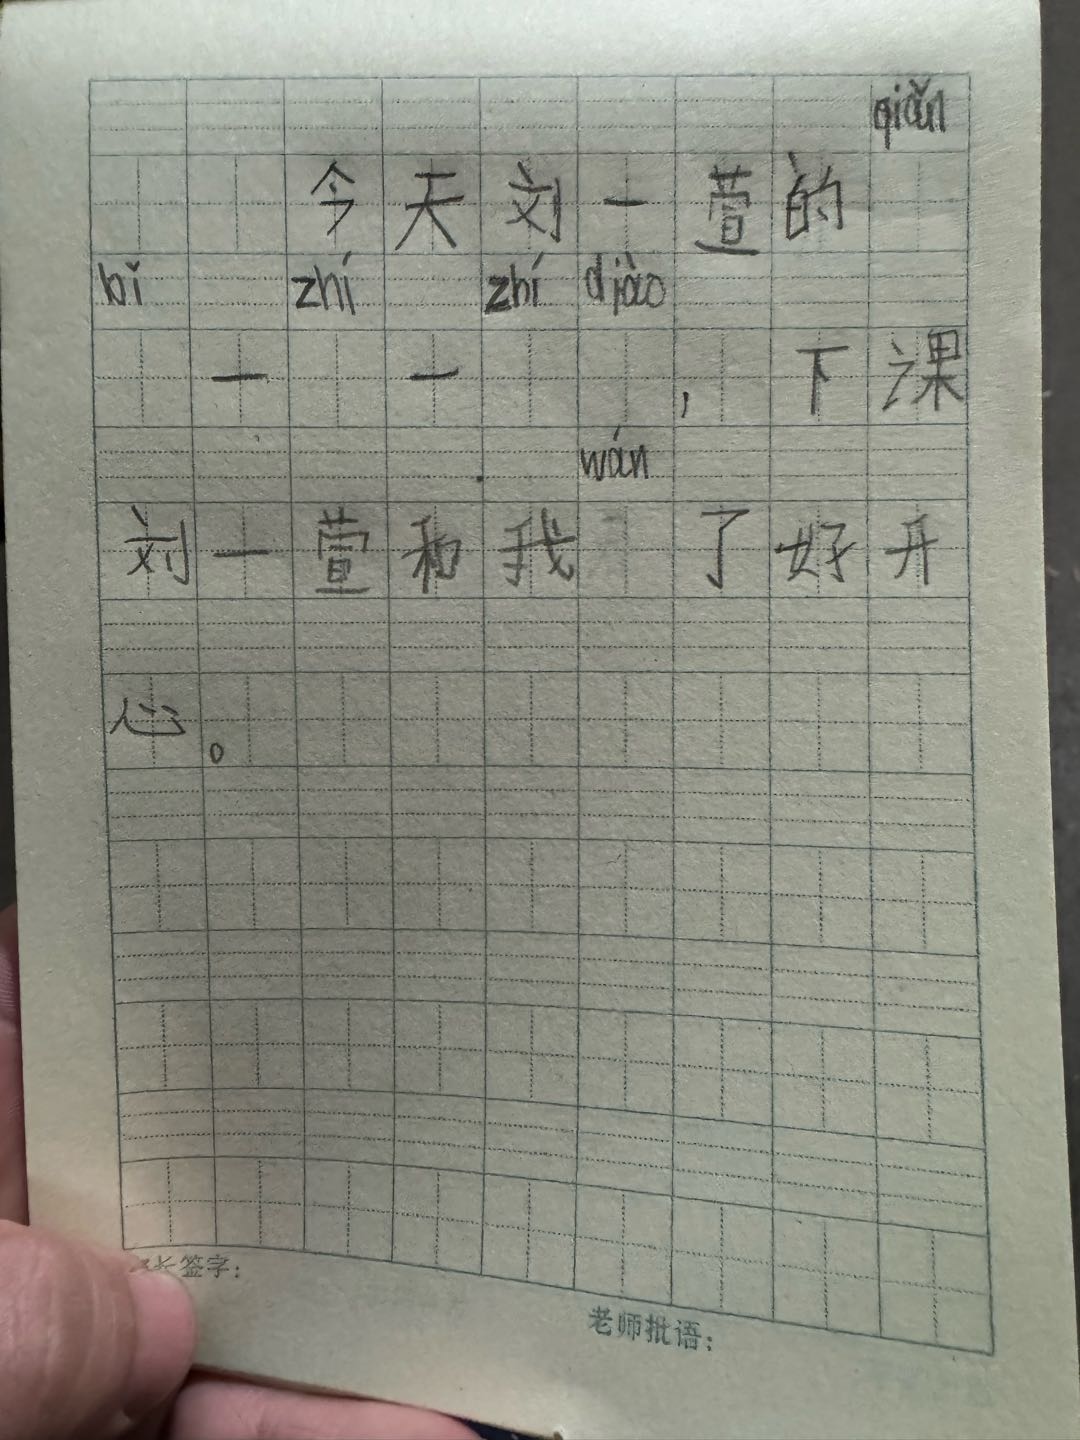 qiǎn
今天刘一萱的
bǐ zhí zhí diào
一 一 ，下课
wán
刘一萱和我 了好开
心。
家长签字：
老师批语：